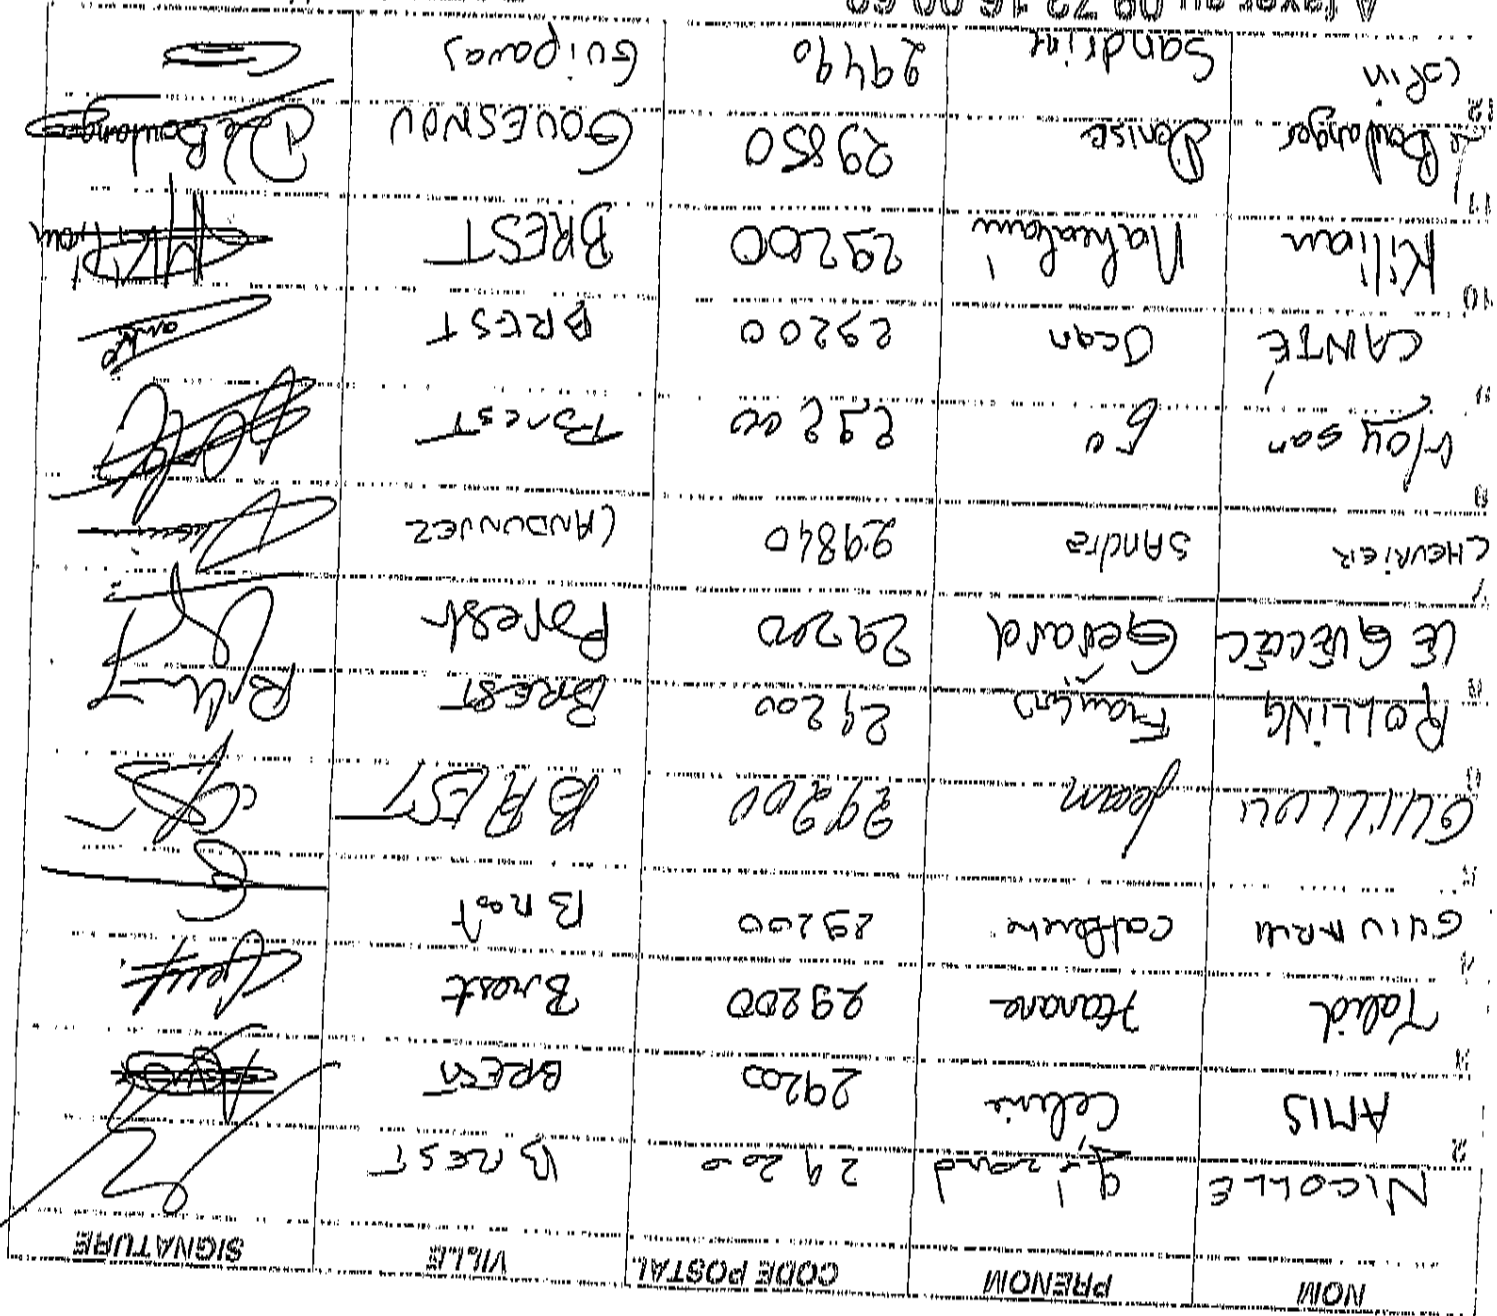 NOM PRENOM CODE POSTAL VILLE SIGNATURE
NICOLLE gérard 29200 BREST
AMIS Celine 29200 BREST
Talid Hanane 29200 Brest
Catherine 29200 Brest
GUILLOU Jean 29200 BREST
ROLLING Francis 29200 BREST
LE GUELLEC Gérard 29200 Brest
CHEVRIER SANDRA 29840 LANDUNVEZ
29200 Brest
CANTÉ Ocan 29200 BREST
Kilian 29200 BREST
Le Boulanger Denise 29850 GOUESNOU Le Boulanger
Colin Sandrine 29490 Guipavas
A faxer au 09 72 16 00 69